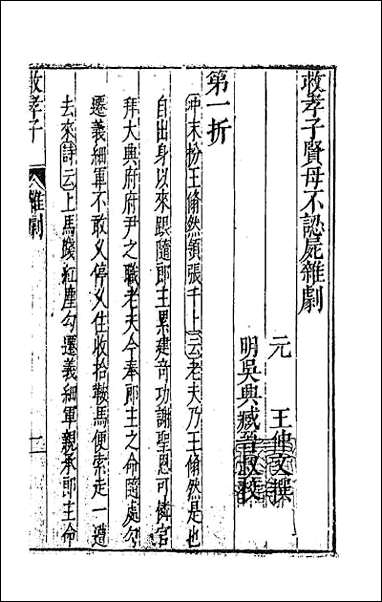 救孝子賢母不認屍雜劇
元　王仲文撰
明吳興臧晉叔校
第一折
〔沖末扮王翛然領張千上〕〔云〕老夫乃王翛然是也
自出身以來跟隨郎主累建奇功謝聖恩可憐官
拜大興府府尹之職老夫今奉郎主之命隨處勾
遷義細軍不敢久停久住收拾鞍馬便索走一遭
去來〔詩云〕上馬踐紅塵勾遷義細軍親承郎主命
救孝子　雜劇　一